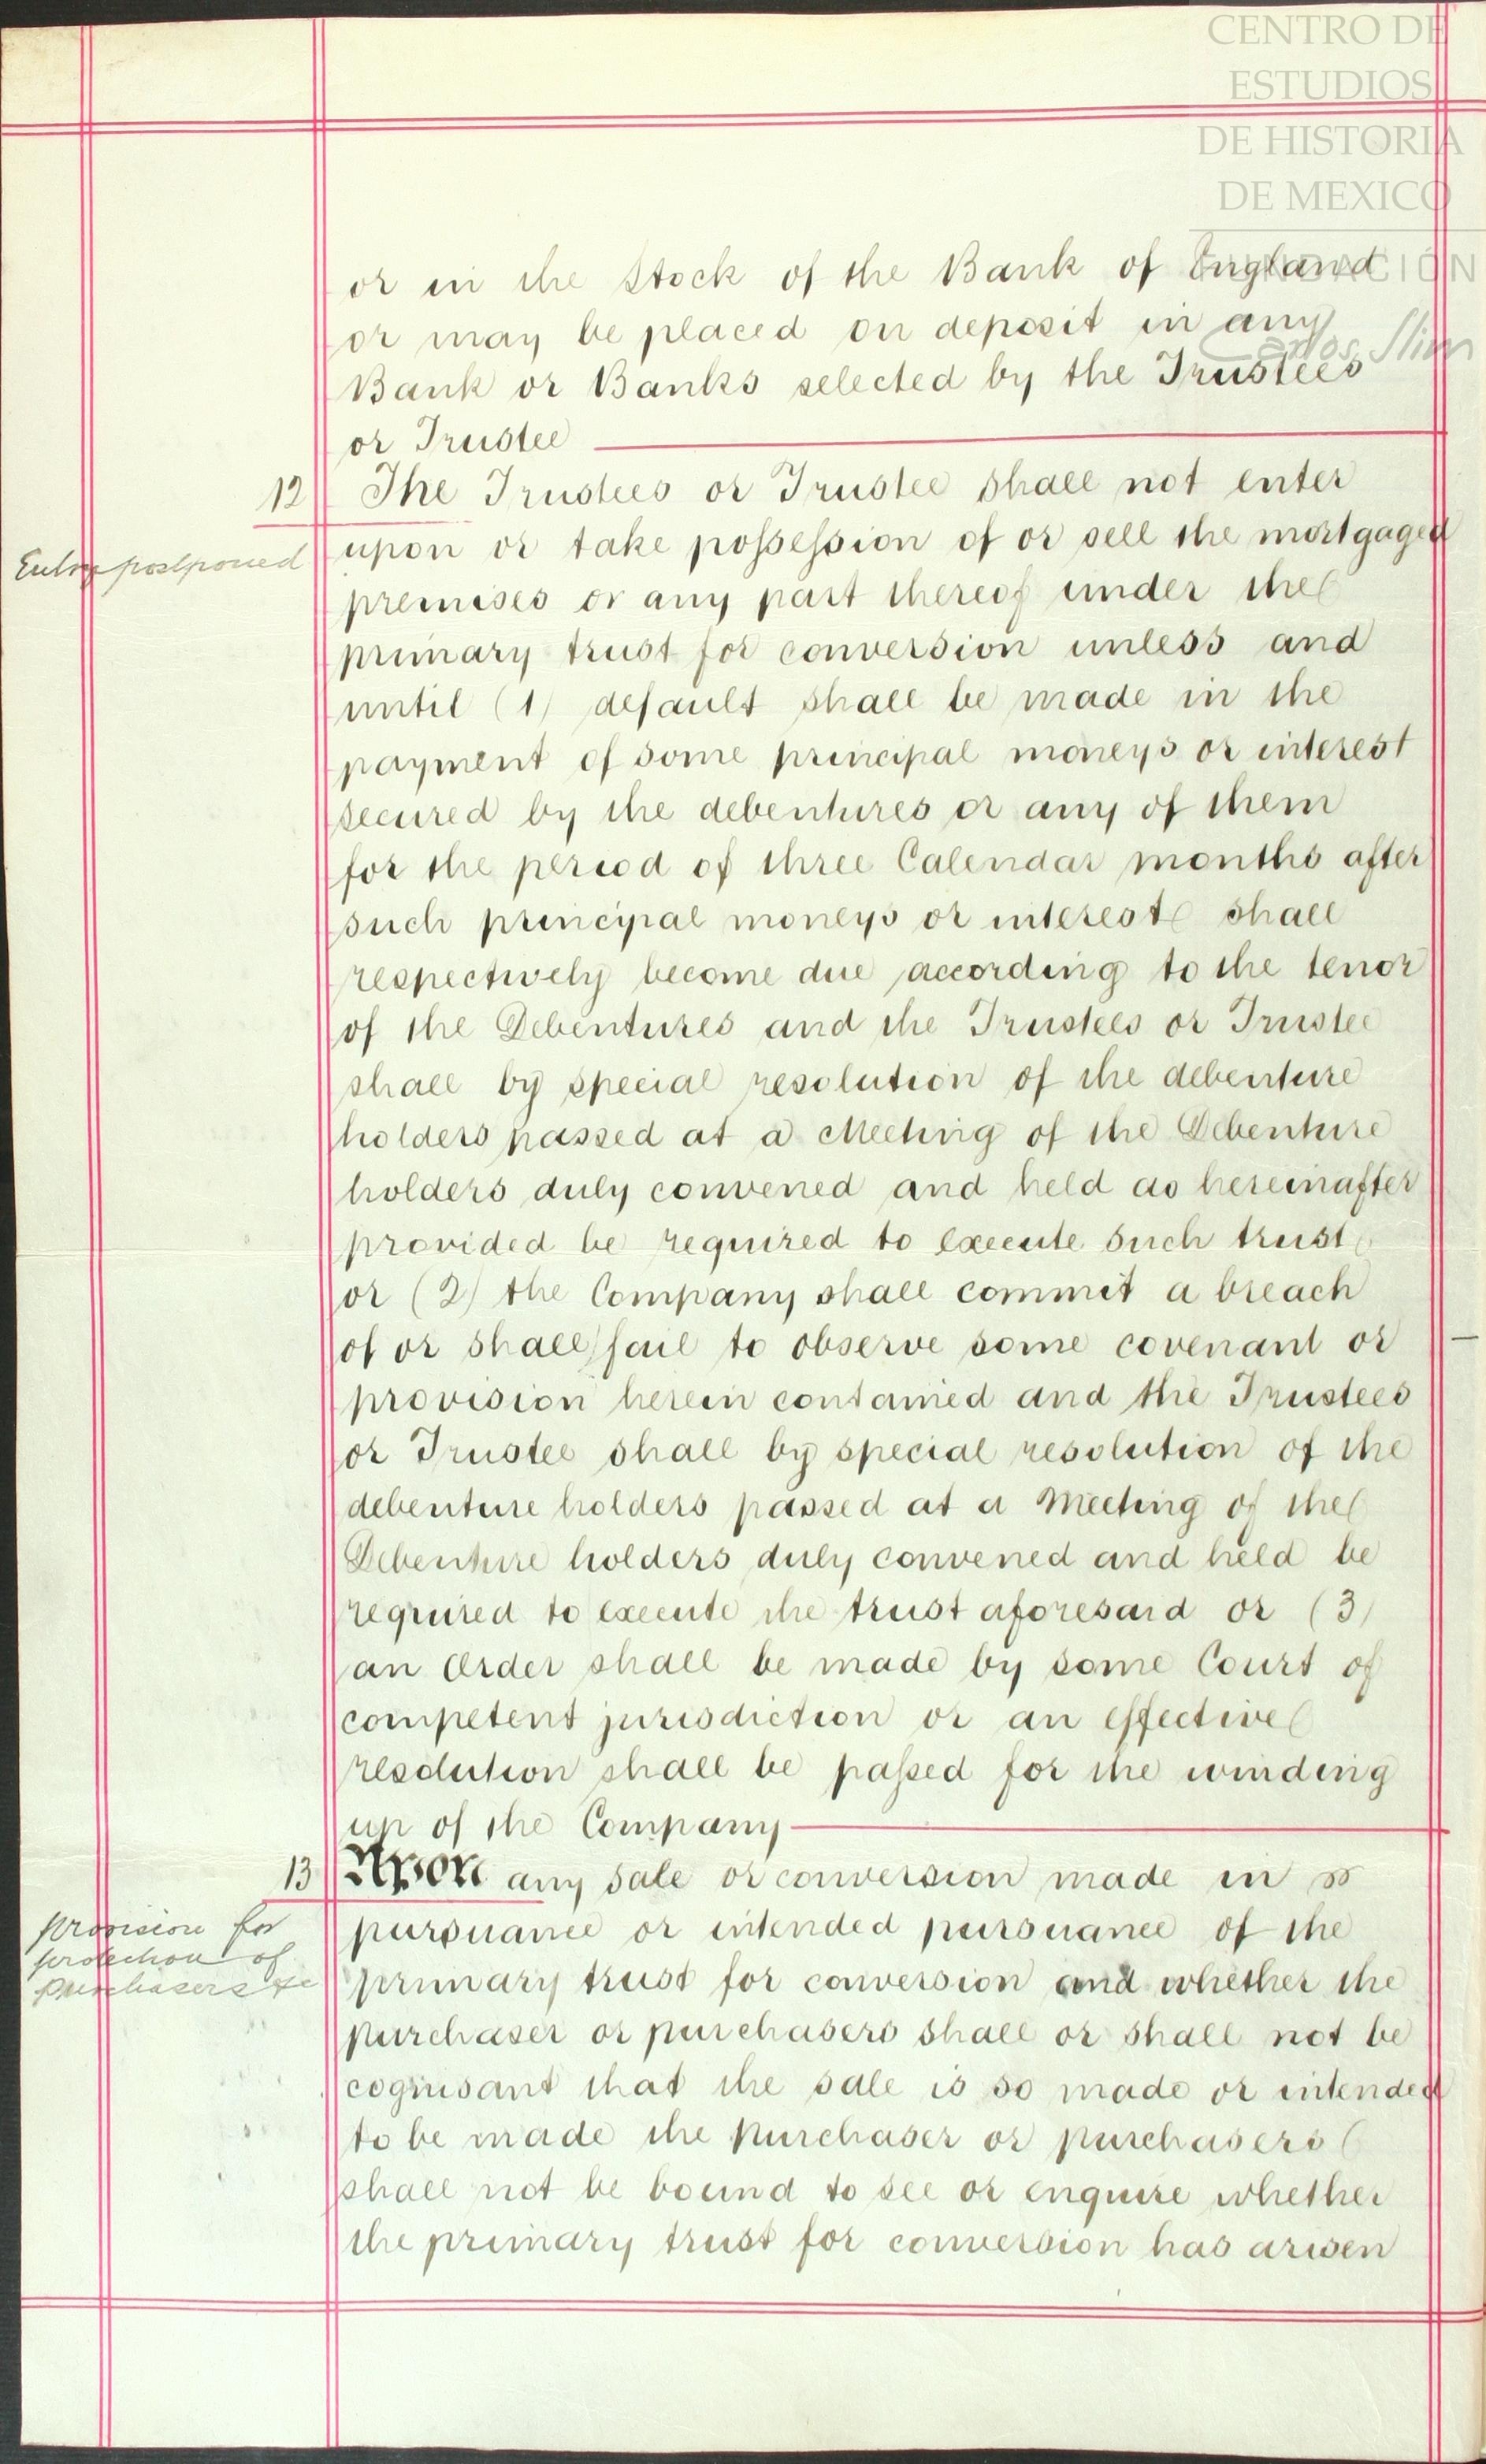 CENTRO DE
ESTUDIOS
DE HISTORIA
DE MEXICO
FUNDACIÓN
Carlos Slim
or in the Stock of the Bank of England
or may be placed on deposit in any
Bank or Banks selected by the Trustees
or Trustee
12 The Trustees or Trustee shall not enter
Entry postponed
upon or take possession of or sell the mortgaged
premises or any part thereof under the
primary trust for conversion unless and
until (1) default shall be made in the
payment of some principal moneys or interest
secured by the debentures or any of them
for the period of three Calendar months after
such principal moneys or interest shall
respectively become due according to the tenor
of the Debentures and the Trustees or Trustee
shall by special resolution of the debenture
holders passed at a Meeting of the Debenture
holders duly convened and held as hereinafter
provided be required to execute such trust
or (2) the Company shall commit a breach
of or shall fail to observe some covenant or
provision herein contained and the Trustees
or Trustee shall by special resolution of the
debenture holders passed at a Meeting of the
Debenture holders duly convened and held be
required to execute the trust aforesaid or (3)
an Order shall be made by some Court of
competent jurisdiction or an effective
resolution shall be passed for the winding
up of the Company
13 Upon any sale or conversion made in
provision for
protection of
purchasers &c
pursuance or intended pursuance of the
primary trust for conversion and whether the
purchaser or purchasers shall or shall not be
cognisant that the sale is so made or intended
to be made the purchaser or purchasers
shall not be bound to see or enquire whether
the primary trust for conversion has arisen